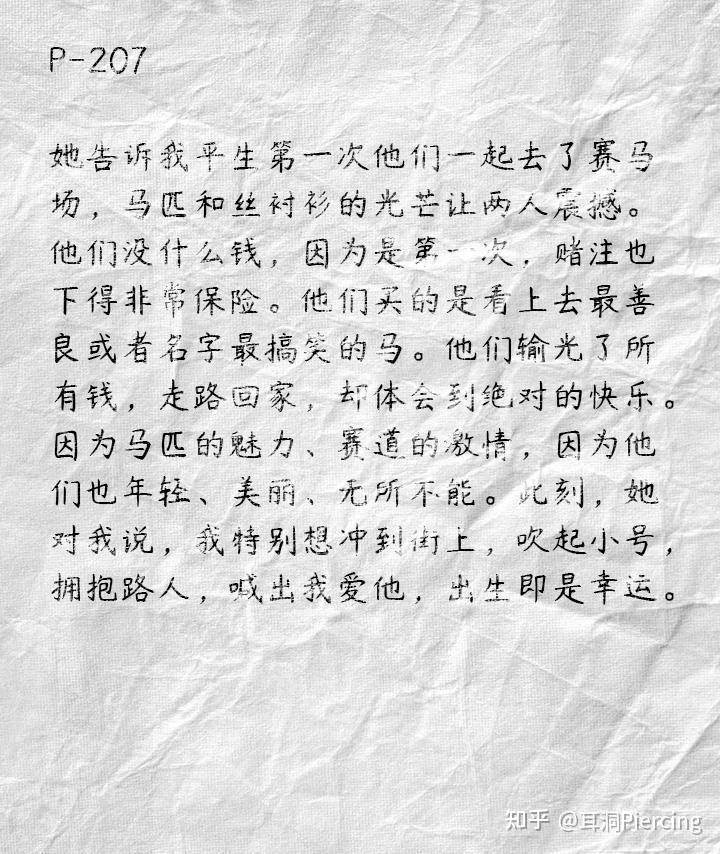 P-207
她告诉我平生第一次他们一起去了赛马
场，马匹和丝衬衫的光芒让两人震撼。
他们没什么钱，因为是第一次，赌注也
下得非常保险。他们买的是看上去最善
良或者名字最搞笑的马。他们输光了所
有钱，走路回家，却体会到绝对的快乐。
因为马匹的魅力、赛道的激情，因为他
们也年轻、美丽、无所不能。此刻，她
对我说，我特别想冲到街上，吹起小号，
拥抱路人，喊出我爱他，出生即是幸运。
知乎 @耳洞Piercing